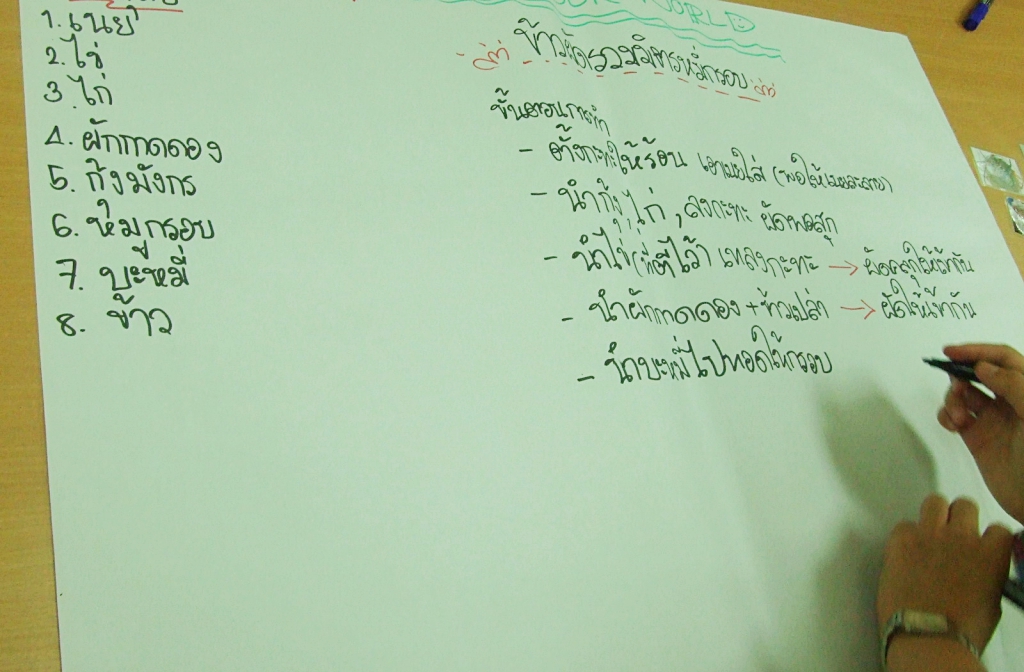 WORLD
1. เนย
2. ไข่
3. ไก่
4. ผักกาดดอง
5. กุ้งมังกร
6. หมูกรอบ
7. บะหมี่
8. ข้าว
ข้าวผัดรวมมิตรหมี่กรอบ
ขั้นตอนการทำ
- ตั้งกะทะให้ร้อน เอาเนยใส่ (พอให้เนยละลาย)
- นำกุ้ง, ไก่, ลงกะทะ ผัดพอสุก
- นำไข่(ที่ตีไว้) เทลงกะทะ → ผัดคลุกให้เข้ากัน
- นำผักกาดดอง + ข้าวเปล่า → ผัดให้เข้ากัน
- นำบะหมี่ไปทอดให้กรอบ